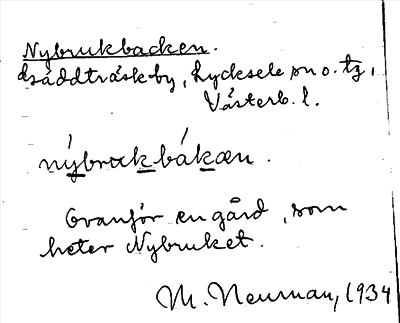 Nybrukbacken.
Råddträsk by, Lycksele sn o. tg,
Västerb. l.
nýbrukbákæn.
Ovanför en gård, som
heter Nybruket.
M. Neuman, 1934